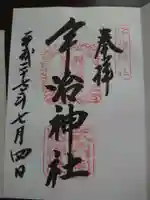 奉拝
宇治神社
平成二十六年七月四日